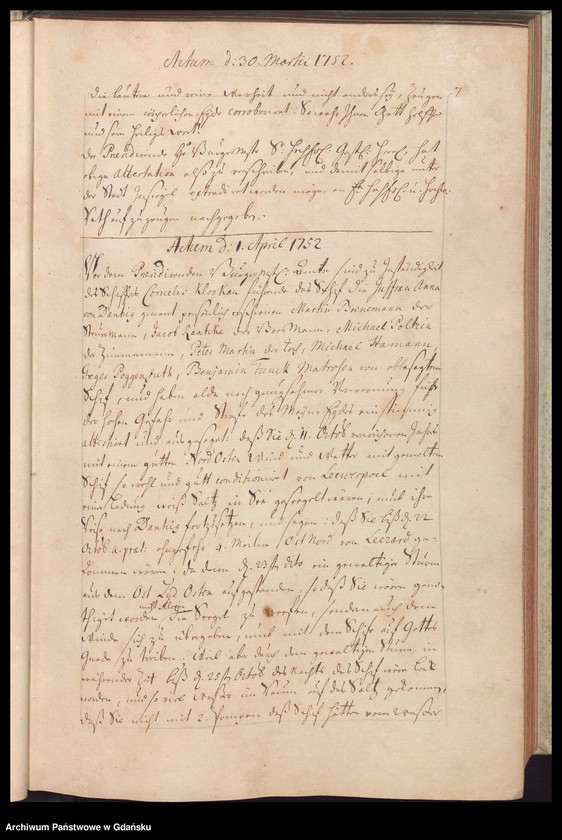 Actum d: 30. Martii 1752.
7
die lautere und reine Warheit und nicht anders sey, Zeugen
mit einem cörperlichen Eyde corroboriret: So wahr Ihnen Gott helffe
und sein heiliges Wort.
Der Præsidirende Hr Bürgermstr Sr. hat
obige Attestation also zu verschreiben, und damit selbige unter
der Stadt Insiegel extradiret werden möge, an
Rath auf zu zeugen nachgegeben.
Actum d: 1. April 1752
Vor dem Præsidirenden Bürgermstrl: Amte sind zu Instandigkeit
des Schiffers Cornelis Kloskau führende das Schif die Juffrau Anna
von Dantzig genant persönlich erschienen Martin Bornemann der
Steuermann, Jacob Raatke der Bootsmann, Michael Poltzin
der Zimmermann, Peter Martin der Koch, Michael Hamann,
Greger Poggenputh, Benjamin Trenck Matrosen von obbesagtem
Schif, und haben alda nach gnugsahmer Verwarnung für
der hohen Gefahr und Strafe des Meyn Eydes einstimmig
attestiret und ausgesaget: daß Sie d. 11. Octob verwichenen Jahres
mit einem gutten Nord Osten Wind und Wetter mit gemeltem
Schif so wohl und gutt conditioniret von Leewerpoel mit
einer Ladung weiß Saltz in See gesegelt wären, umb ihre
Reise nach Dantzig fortzusetzen, und sagen: daß Sie biß d. 22
Octob a. præt: ohngefehr 4. Meilen Ost Nord von Leezard ge-
kommen wären, da denn d. 23st dito ein gewaltiger Sturm
aus dem Ost Zyd Osten aufgestanden, so daß Sie wären genö-
thiget worden nicht allein die Seegel zu reeffen, sondern auch dem
Winde sich zu übergeben, und mit dem Schife auf Gottes
Gnade zu treiben: Weil aber durch den gewaltigen Sturm, in
währender Zeit biß d. 25st Octob des Nachts das Schif wäre Leck
worden, und so viel Waßer im Raum auf das Saltz gekommen,
daß Sie nicht mit 2. Pompen daß Schif hätten vom Waßer
Archiwum Państwowe w Gdańsku